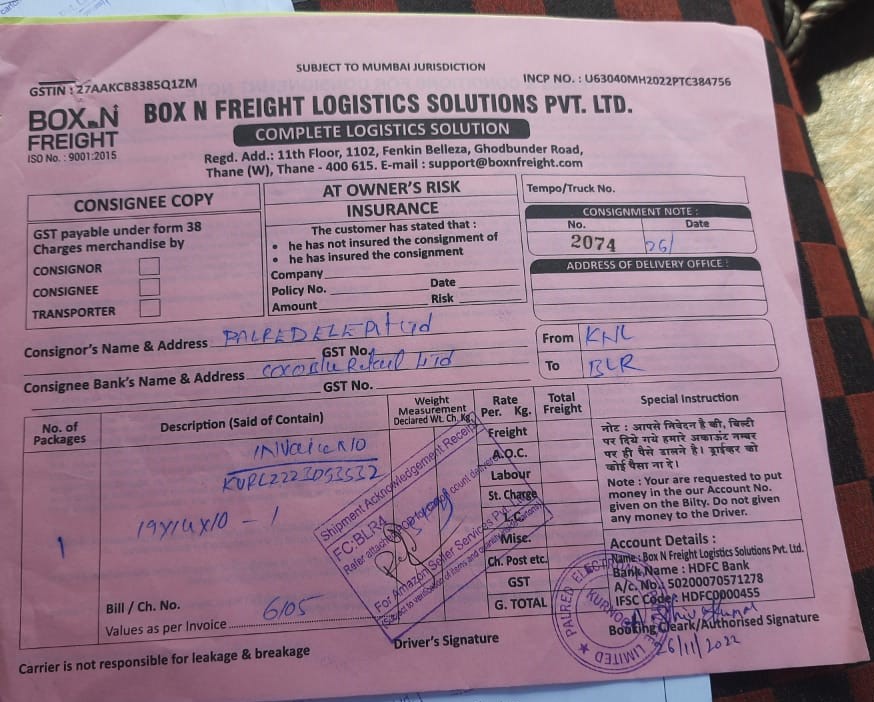 SUBJECT TO MUMBAI JURISDICTION
GSTIN : 27AAKCB8385Q1ZM
INCP NO. : U63040MH2022PTC384756
BOX N FREIGHT
ISO No. : 9001:2015
BOX N FREIGHT LOGISTICS SOLUTIONS PVT. LTD.
COMPLETE LOGISTICS SOLUTION
Regd. Add.: 11th Floor, 1102, Fenkin Belleza, Ghodbunder Road,
Thane (W), Thane - 400 615. E-mail : support@boxnfreight.com
CONSIGNEE COPY
GST payable under form 38
Charges merchandise by
CONSIGNOR
CONSIGNEE
TRANSPORTER
AT OWNER'S RISK
INSURANCE
The customer has stated that :
• he has not insured the consignment of
• he has insured the consignment
Company
Policy No. Date
Amount Risk
Tempo/Truck No.
CONSIGNMENT NOTE :
No. Date
2074 26/
ADDRESS OF DELIVERY OFFICE :
Consignor's Name & Address PALRED ELE Pvt Ltd
GST No.
Consignee Bank's Name & Address Cocoblu Retail Ltd
GST No.
From KNL
To BLR
No. of Packages
Description (Said of Contain)
Weight
Measurement
Declared Wt. Ch. Kg.
Rate
Per. Kg.
Total
Freight
Special Instruction
1
INVoice No
19x14x10 - 1
Bill / Ch. No.
Values as per Invoice 6105
Freight
A.O.C.
Labour
St. Charge
L.C.
Misc.
Ch. Post etc.
GST
G. TOTAL
नोट : आपसे निवेदन है की, बिल्टी
पर दिये गये हमारे अकाउंट नम्बर
पर ही पैसे डालने है। ड्राईवर को
कोई पैसा ना दे।
Note : Your are requested to put
money in the our Account No.
given on the Bilty. Do not given
any money to the Driver.
Account Details :
Name : Box N Freight Logistics Solutions Pvt. Ltd.
Bank Name : HDFC Bank
A/c. No. : 50200070571278
IFSC Code : HDFC0000455
Booking Cleark/Authorised Signature
26/11/2022
Driver's Signature
Carrier is not responsible for leakage & breakage
Shipment Acknowledgement Receipt
FC:BLRA
For Amazon Seller Services Pvt.
LIMITED